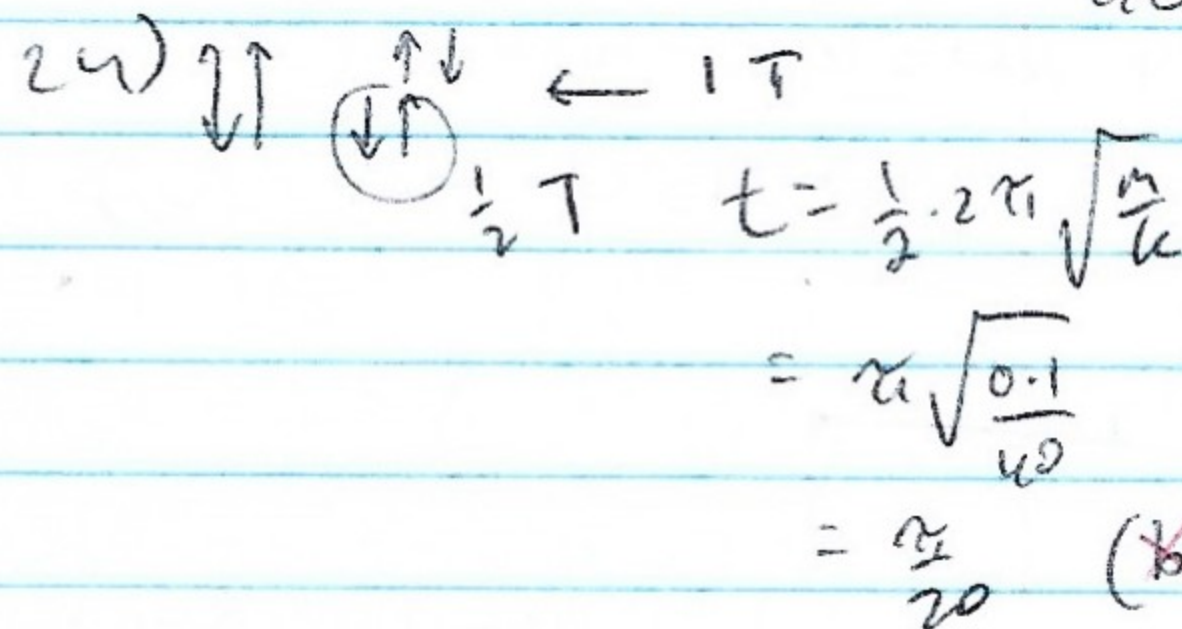 24) ↓↑ ↑↓ ← 1 T
↓↑
1/2 T t = 1/2 · 2π √(m/k)
= π √(0.1/40)
= π/20 (b